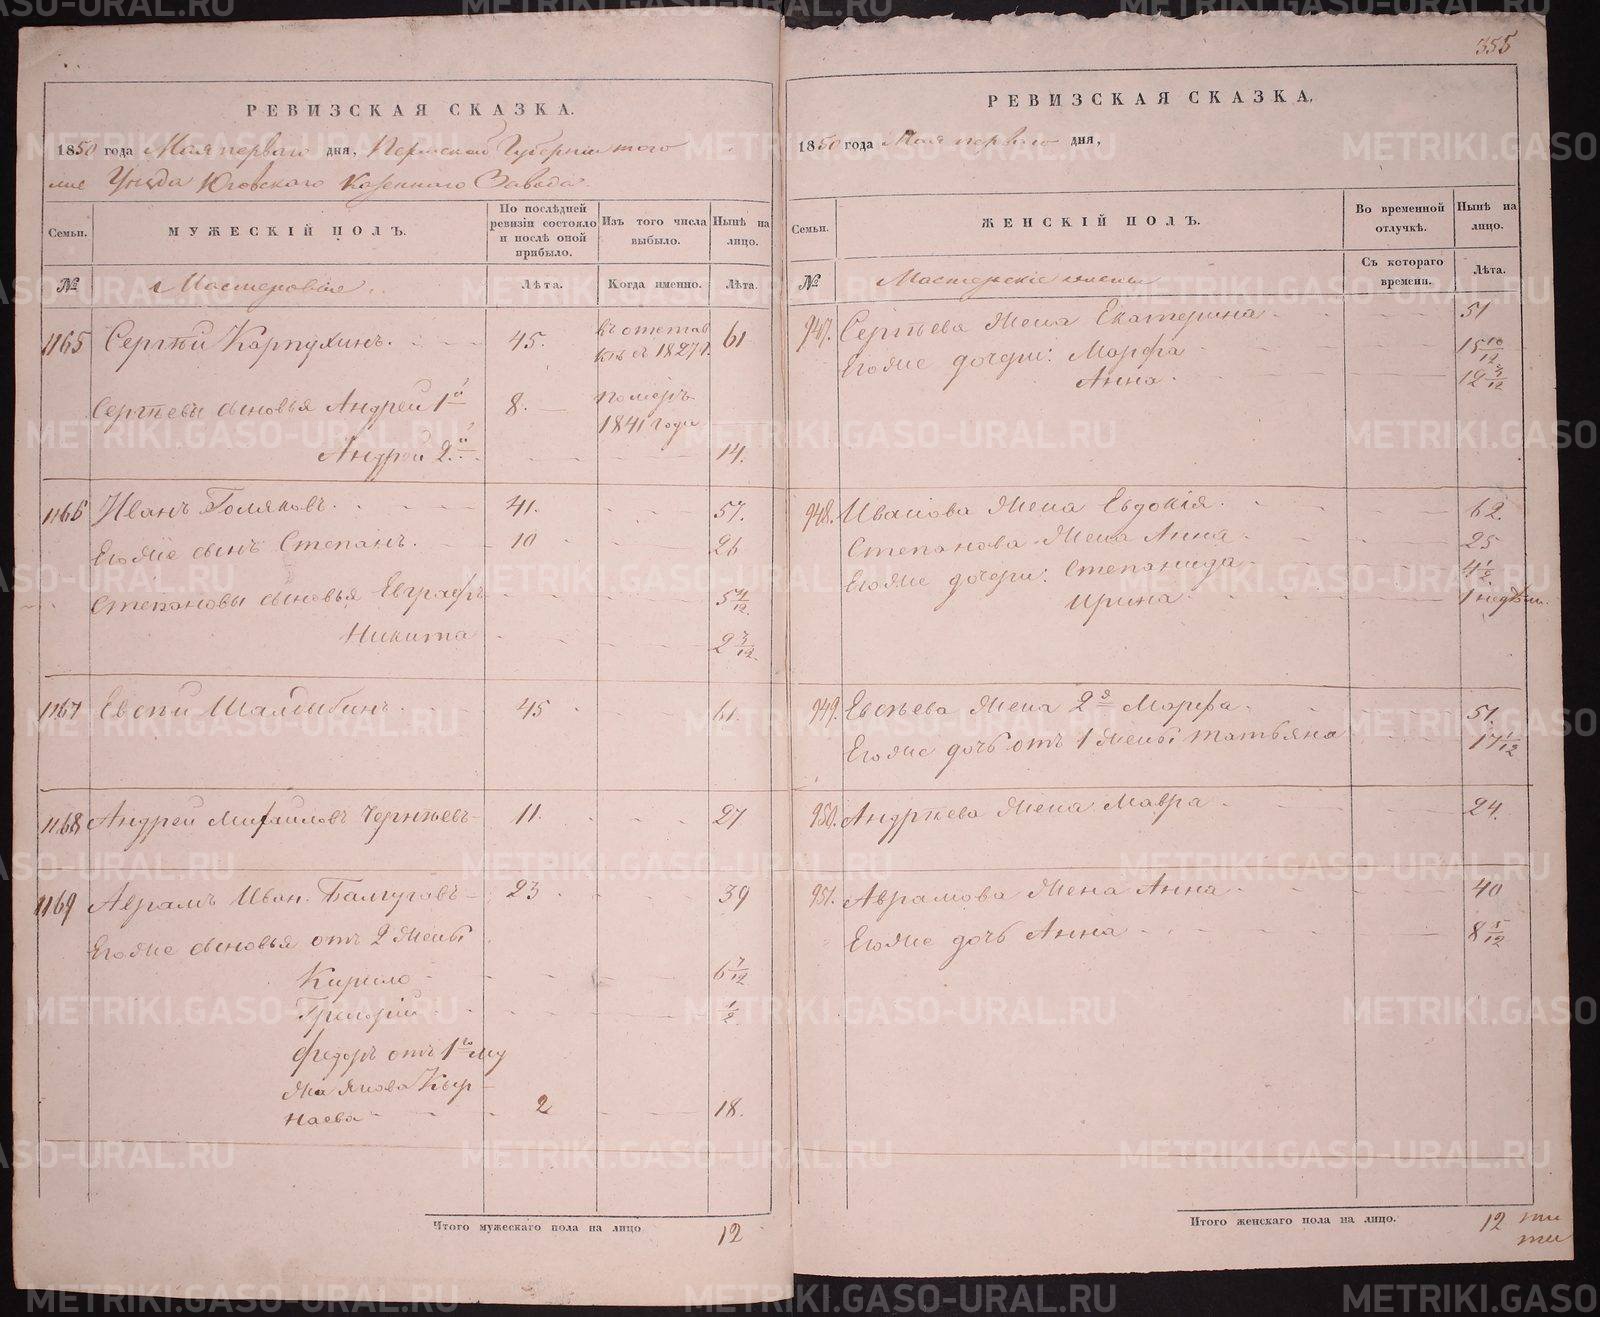 355
РЕВИЗСКАЯ СКАЗКА.
1850 года Мая перваго дня, Пермской Губернии того
же Уѣзда Юговскаго Казеннаго Завода.
Семьи.
МУЖЕСКІЙ ПОЛЪ.
По послѣдней ревизіи состояло и послѣ оной прибыло.
Изъ того числа выбыло.
Нынѣ на лицо.
№
Мастеровые.
Лѣта.
Когда именно.
Лѣта.
1165 Сергѣй Карпухинъ. 45. въ отстав 61
кѣ съ 1827 г.
Сергѣевы сыновья Андрей 1й 8. померъ
1841 года
Андрей 2й 14.
1166 Иванъ Голяковъ. 41. 57.
Егоже сынъ Степанъ. 10 26
Степановы сыновья Евграфъ 5 4/12.
Никита 2 3/12.
1167 Евсѣй Шалдыбинъ. 45 61.
1168 Андрей Михайловъ 11. 27
1169 Аврамъ Иван. 23 39
Егоже сыновья отъ 2 жены
Кирило 6 7/12
Григорій 1/2
Федоръ отъ 1го му
жа Якова Кыр
наева 2 18.
Итого мужескаго пола на лицо 12
РЕВИЗСКАЯ СКАЗКА.
1850 года Мая перваго дня,
Семьи.
ЖЕНСКІЙ ПОЛЪ.
Во временной отлучкѣ.
Нынѣ на лицо.
№
Мастерскіе жены
Съ котораго времени.
Лѣта.
947. Сергѣева жена Екатерина 51
Егоже дочери: Марфа 15 10/12
Анна 12 3/12
948. Иванова жена Евдокія. 62.
Степанова жена Анна 25
Егоже дочери: Степанида 4 1/2.
Ирина 1 недѣли.
949. Евсѣева жена 2я Марфа. 51.
Егоже дочь отъ 1 жены Татьяна 17 1/12
950. Андрѣева жена Мавра 24.
951. Аврамова жена Анна 40
Егоже дочь Анна 8 5/12
Итого женскаго пола на лицо. 12
METRIKI.GASO-URAL.RU